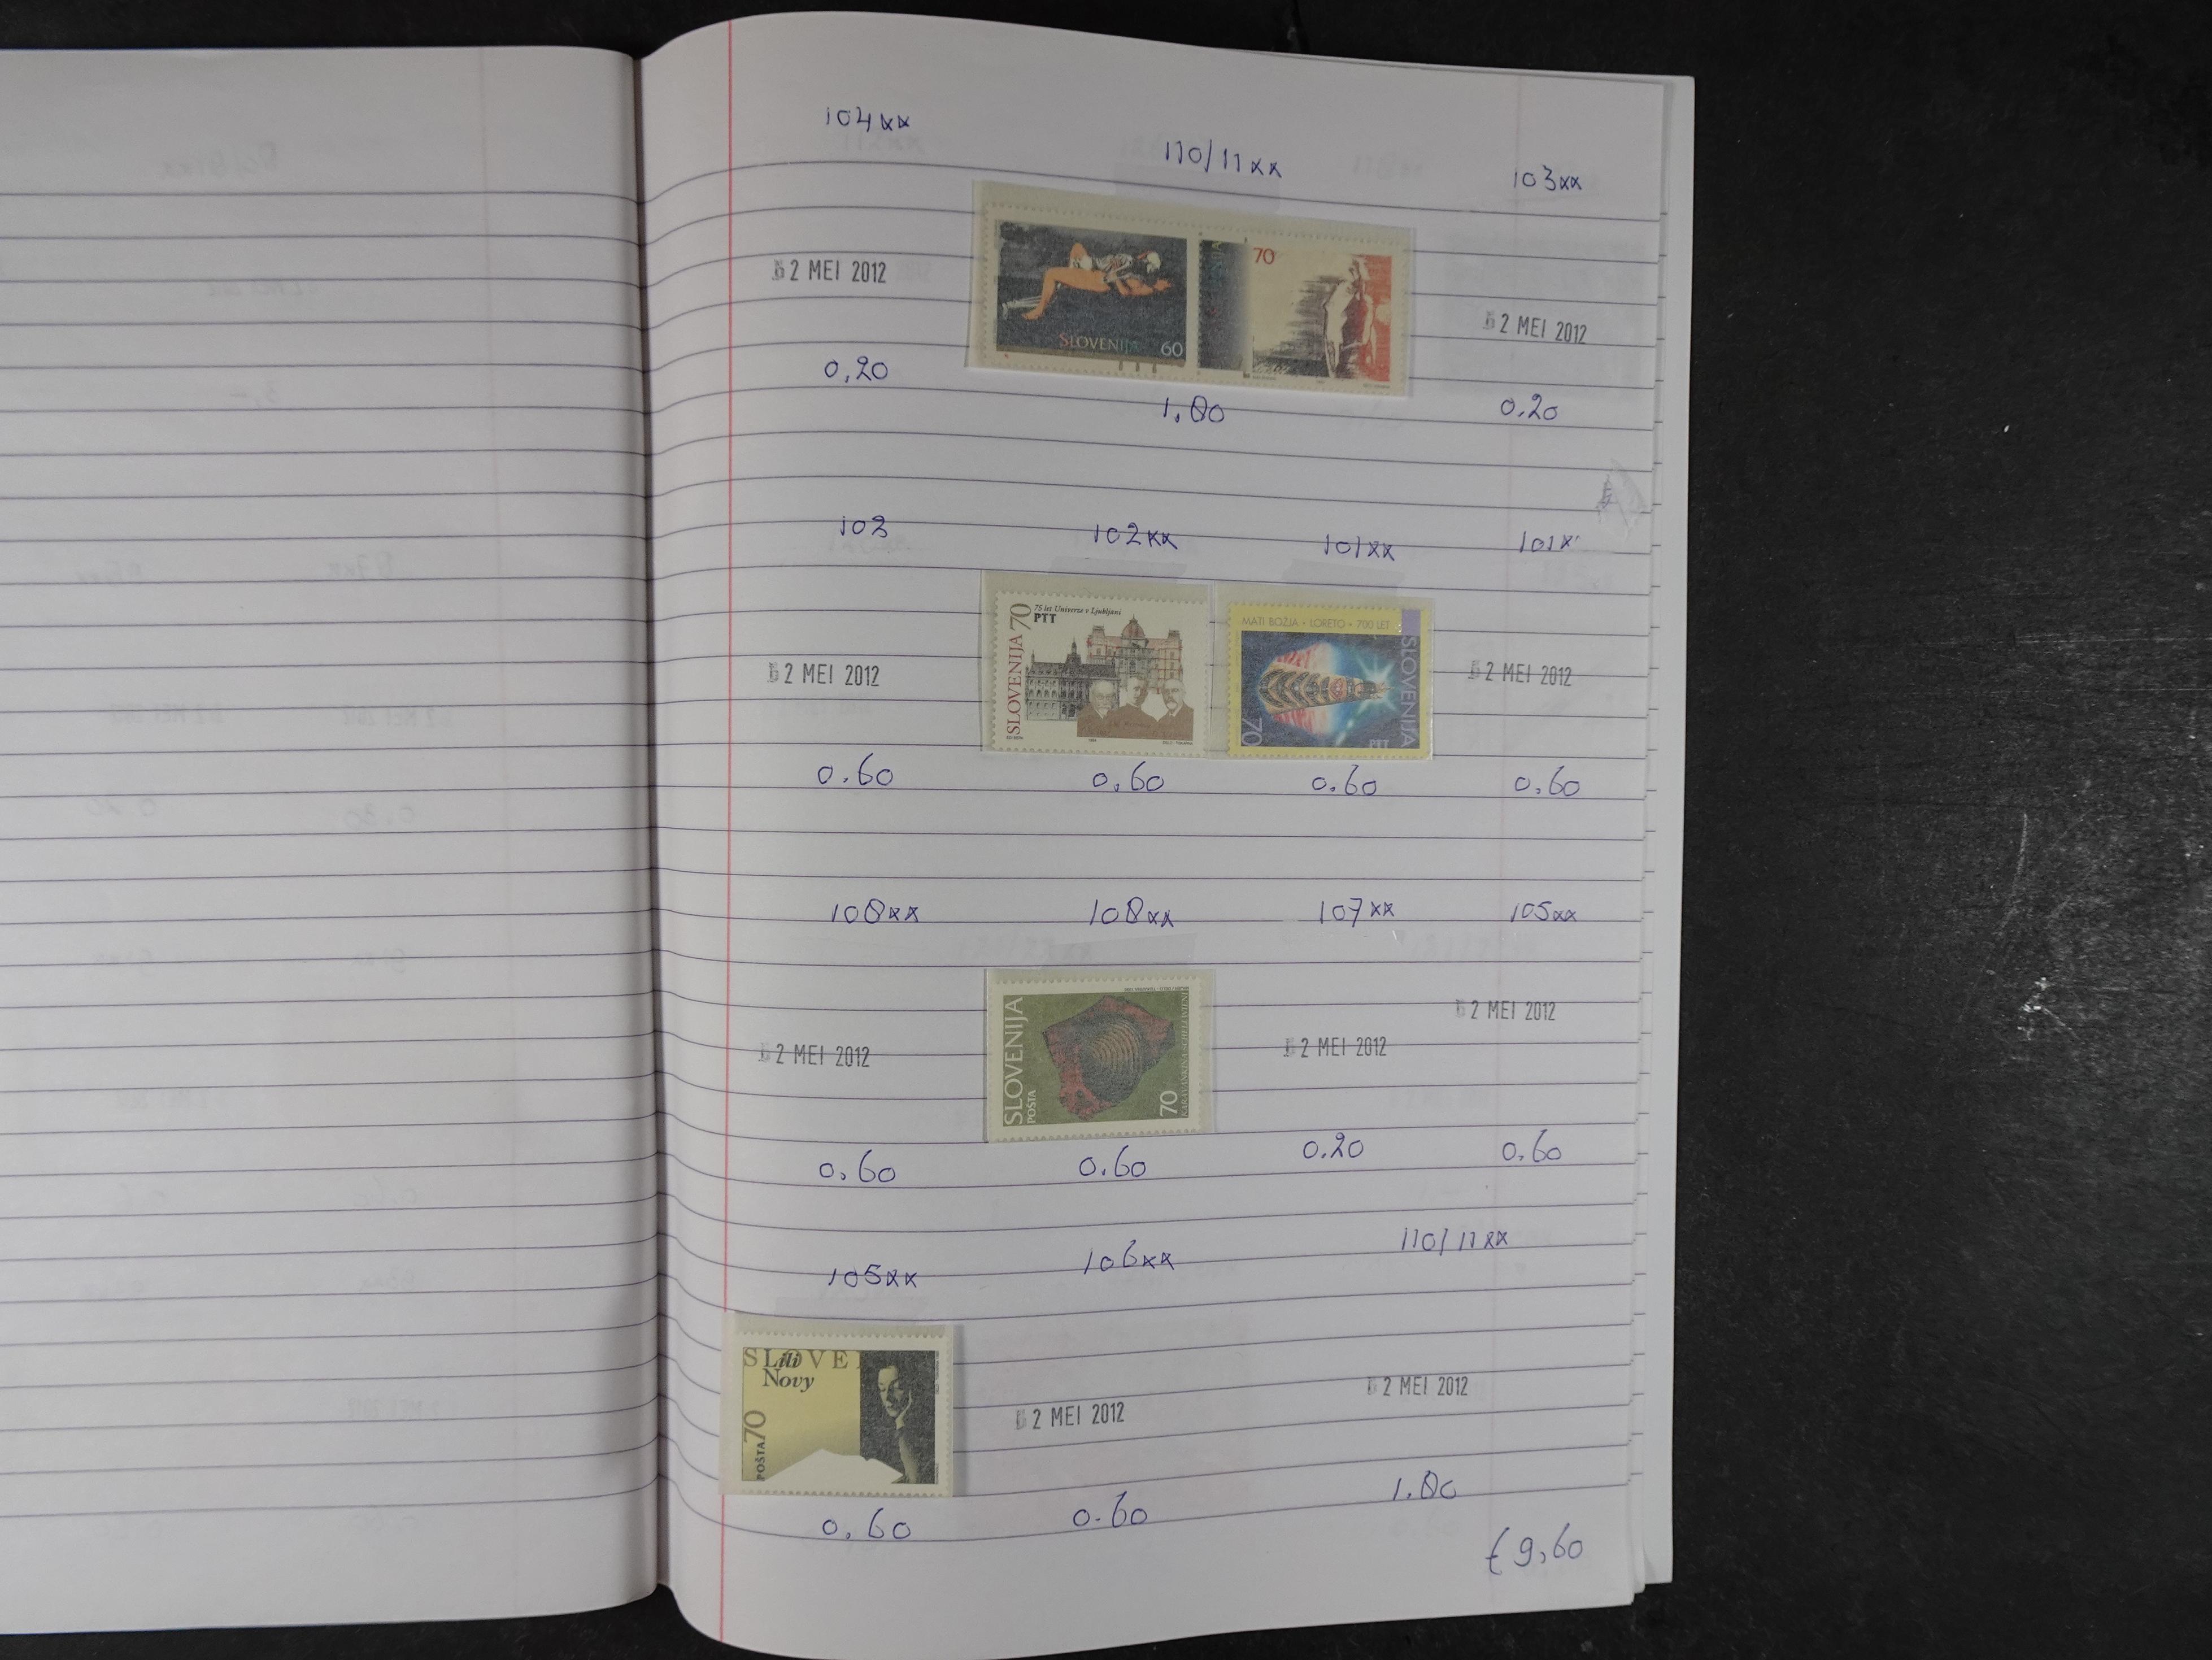 104xx 110/11xx 103xx
2 MEI 2012
SLOVENIJA 60
70
2 MEI 2012
0,20 1,80 0.20
103 102xx 101xx 101x
2 MEI 2012
SLOVENIJA 70
75 let Univerze v Ljubljani
PTT
MATI BOŽJA • LORETO • 700 LET
SLOVENIJA
70
PTT
2 MEI 2012
0.60 0,60 0.60 0.60
108xx 108xx 107xx 105xx
2 MEI 2012
SLOVENIJA
POŠTA
70
2 MEI 2012
2 MEI 2012
0,60 0.60 0.20 0.60
105xx 106xx 110/11xx
SLOVE
Lili
Novy
POŠTA 70
2 MEI 2012
2 MEI 2012
0,60 0.60 1.80
€ 9,60